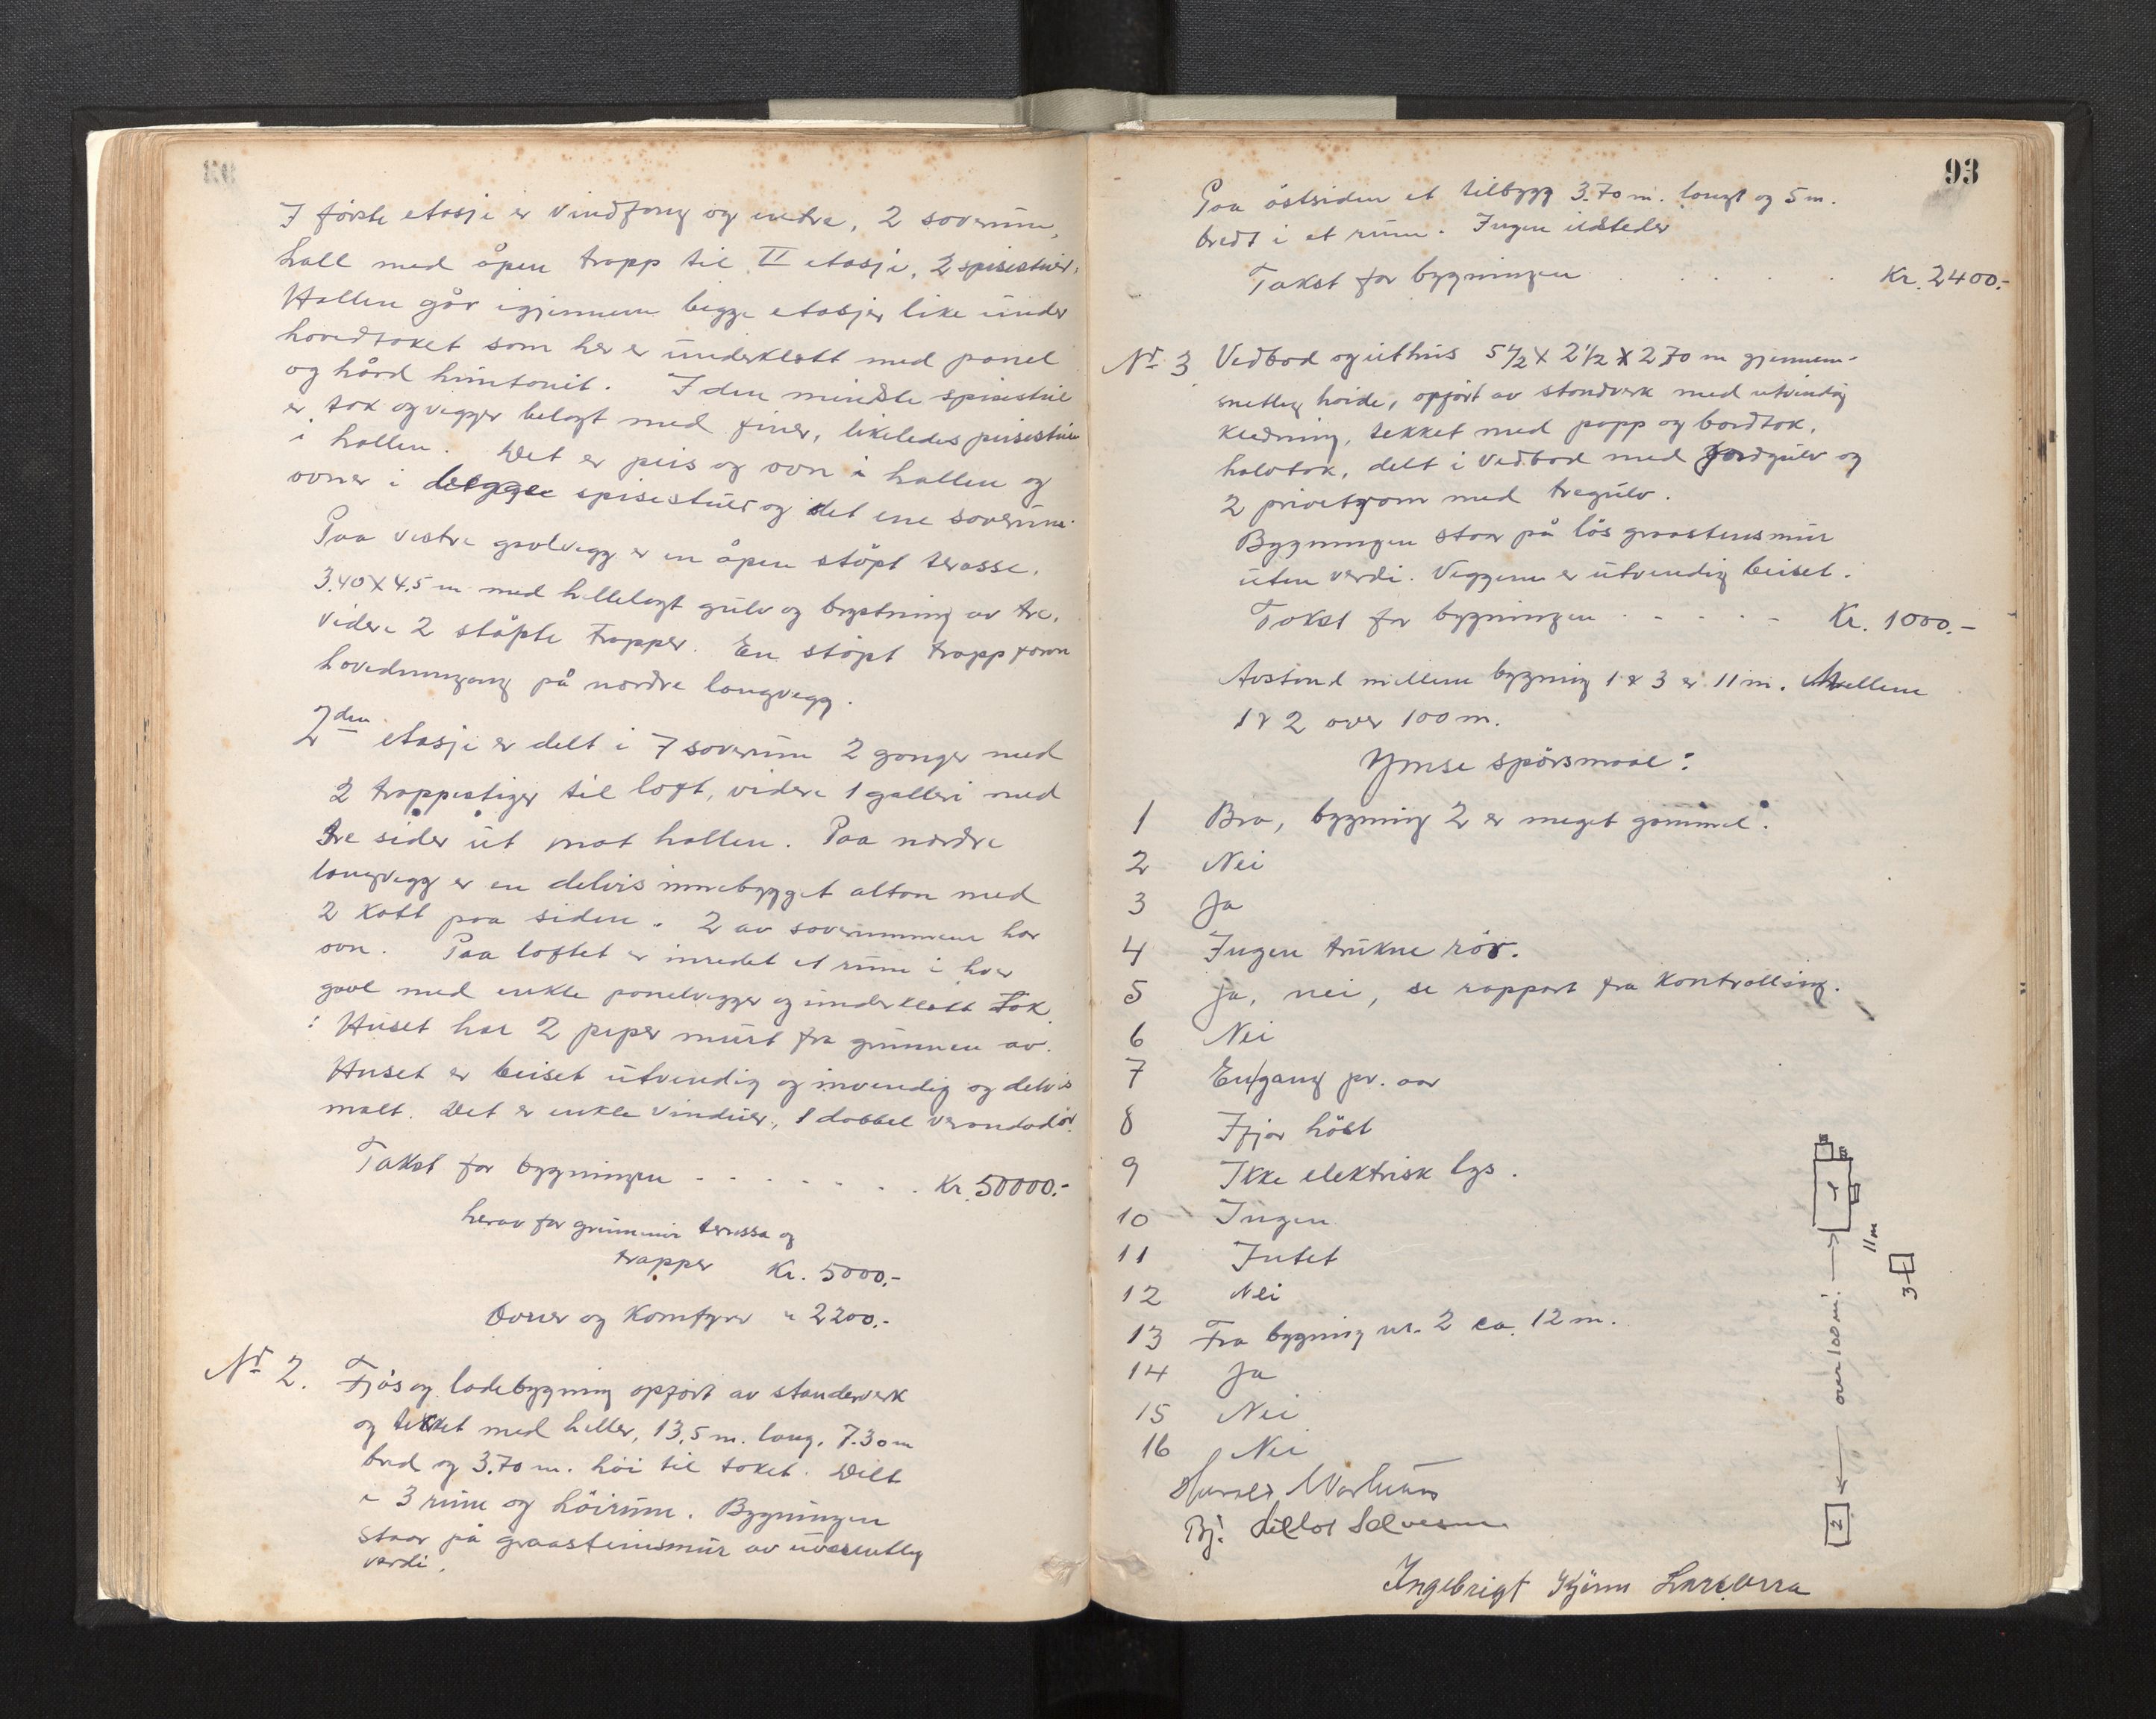 I förste etasje er vindfang og entre, 2 soverum,
hall med åpen trapp til II etasje, 2 spisestuer.
Hallen går igjennem begge etasjer like under
hovedtaket som her er underklett med panel
og hård huntonit. I den mindste spisestue
er tak og vegger belagt med finer, likeledes peisestue
i hallen. Det er peis og ovn i hallen og
ovner i begge spisestuer og det ene soverum.
Paa vestre gavlvegg er en åpen støpt terasse,
3.40 X 4,5 m med hellelagt gulv og brystning av tre,
videre 2 støpte trapper. En støpt trapp foran
hovedinngang på nordre langvegg.
2den etasje er delt i 7 soverum 2 ganger med
2 trappestiger til loft, videre 1 galleri med
tre sider ut mot hallen. Paa nordre
langvegg er en delvis innebygget altan med
2 kott paa siden. 2 av soverummene har
ovn. Paa loftet er inredet et rum i hver
gavl med enkle panelvegger og underklett tak.
Huset har 2 piper murt fra grunnen av.
Huset er beiset utvendig og invendig og delvis
malt. Det er enkle vinduer, 1 dobbel verandadör.
Takst for bygningen . . . . . . . Kr. 50000.-
herav for grunnmur terassa og
trapper Kr. 5000.-
Ovner og Komfyrer " 2200.-
No 2. Fjös og ladebygning opfört av standerverk
og tekket med heller, 13,5 m. lang, 7.30 m
bred og 3.70 m. höi til taket. Delt
i 3 rum og höirum. Bygningen
staar på graasteinsmur av uvesentlig
verdi.
93
Paa östsiden et tilbygg 3.70 m. langt og 5 m.
bredt i et rum. Ingen ildsteder
Takst for bygningen . . . Kr. 2400.-
No 3 Vedbod og uthus 5 1/2 X 2 1/2 X 2.70 m gjennem-
snetlig höide, opfört av standverk med utvendig
kledning, tekket med papp og bordtak,
halvtak, delt i vedbod med jordgulv og
2 privetrom med tregulv.
Bygningen staar på lös graastensmur
uten verdi. Veggene er utvendig beiset.
Takst for bygningen . . . . Kr. 1000.-
Avstand mellem bygning 1 & 3 er 11 m. Mellem
1 & 2 over 100 m.
Ymse spörsmaal:
1 Bra, bygning 2 er meget gammel.
2 Nei
3 Ja
4 Ingen trukne rör.
5 Ja, nei, se rapport fra Kontrolling.
6 Nei
7 En gang pr. aar
8 Ifjor höst
9 Ikke elektrisk lys.
10 Ingen
11 Intet
12 Nei
13 Fra bygning nr. 2 ca. 12 m.
14 Ja
15 Nei
16 Nei
Bj.
Ingebrigt
1
11 m
3
over 100 m.
2